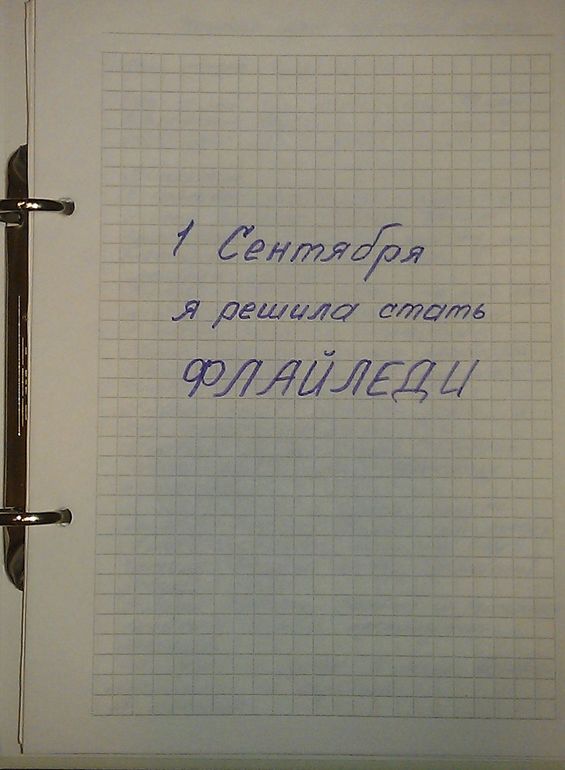 1 Сентября
я решила стать
ФЛАЙЛЕДИ